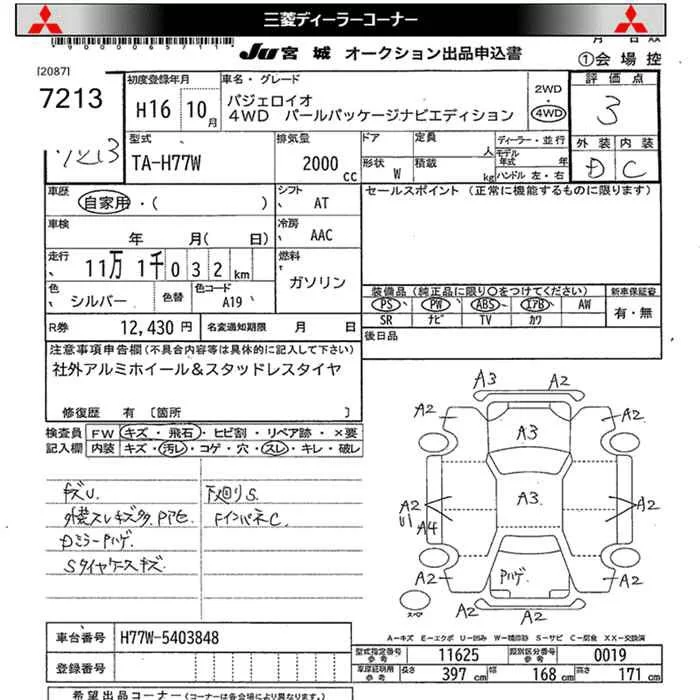 三菱ディーラーコーナー
JU 宮城 オークション出品申込書
①会場控
[2087]
7213
初度登録年月
H16 10月
車名・グレード
パジェロイオ
4WD パールパッケージナビエディション
2WD
・
4WD
評価点
3
7213
型式
TA-H77W
排気量
2000 cc
ドア
形状 W
定員 人
積載 kg
ディーラー・並行
モデル年式 年
ハンドル 左・右
外装 内装
D C
車歴
自家用・( )
シフト AT
セールスポイント (正常に機能するものに限ります)
車検
年 月( 日)
冷房 AAC
走行
11万 1千 0 3 2 km
燃料
ガソリン
色 シルバー
色替
色コード A19
装備品 (純正品に限り○をつけてください)
新車保証書
PS PW ABS エアB AW
有・無
SR ナビ TV カワ
R券 12,430 円
名変通知期限 月 日
後日品
注意事項申告欄 (不具合内容等は具体的に記入して下さい)
社外アルミホイール&スタッドレスタイヤ
修復歴 有 [箇所 ]
検査員記入欄
FW キズ・飛石・ヒビ割・リペア跡・×要
内装 キズ・汚レ・コゲ・穴・スレ・キレ・破レ
キズU.
下廻りS.
外装スレキズ多.
FインパネC.
Dミラーハゲ
Sタイヤケースキズ
A3
A2
A2
A2
A3
A2
A3
A2
A4
A2
A2
A2
A2
Pハゲ
スペア
A-キズ E-エクボ U-凹み W-補修跡 S-サビ C-腐食 XX-交換済
車台番号 H77W-5403848
登録番号
型式指定番号 参考 11625
類別区分番号 参考 0019
参考 長さ 397 cm 幅 168 cm 高さ 171 cm
希望出品コーナー (コーナーは各会場により異なります。)